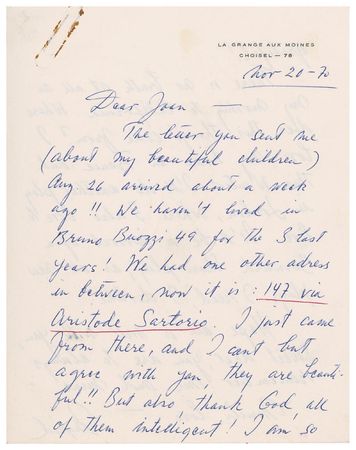 LA GRANGE AUX MOINES
CHOISEL — 78
Nov 20-70
Dear Joan —
The letter you sent me
(about my beautiful children)
Aug 26 arrived about a week
ago!! We haven't lived in
Bruno Buozzi 49 for the 3 last
years! We had one other adress
in between, now it is : 147 via
Aristode Sartorio. I just came
from there, and I cant but
agree with you, they are beauti-
ful!! But also, thank God, all
of them intelligent! I am so